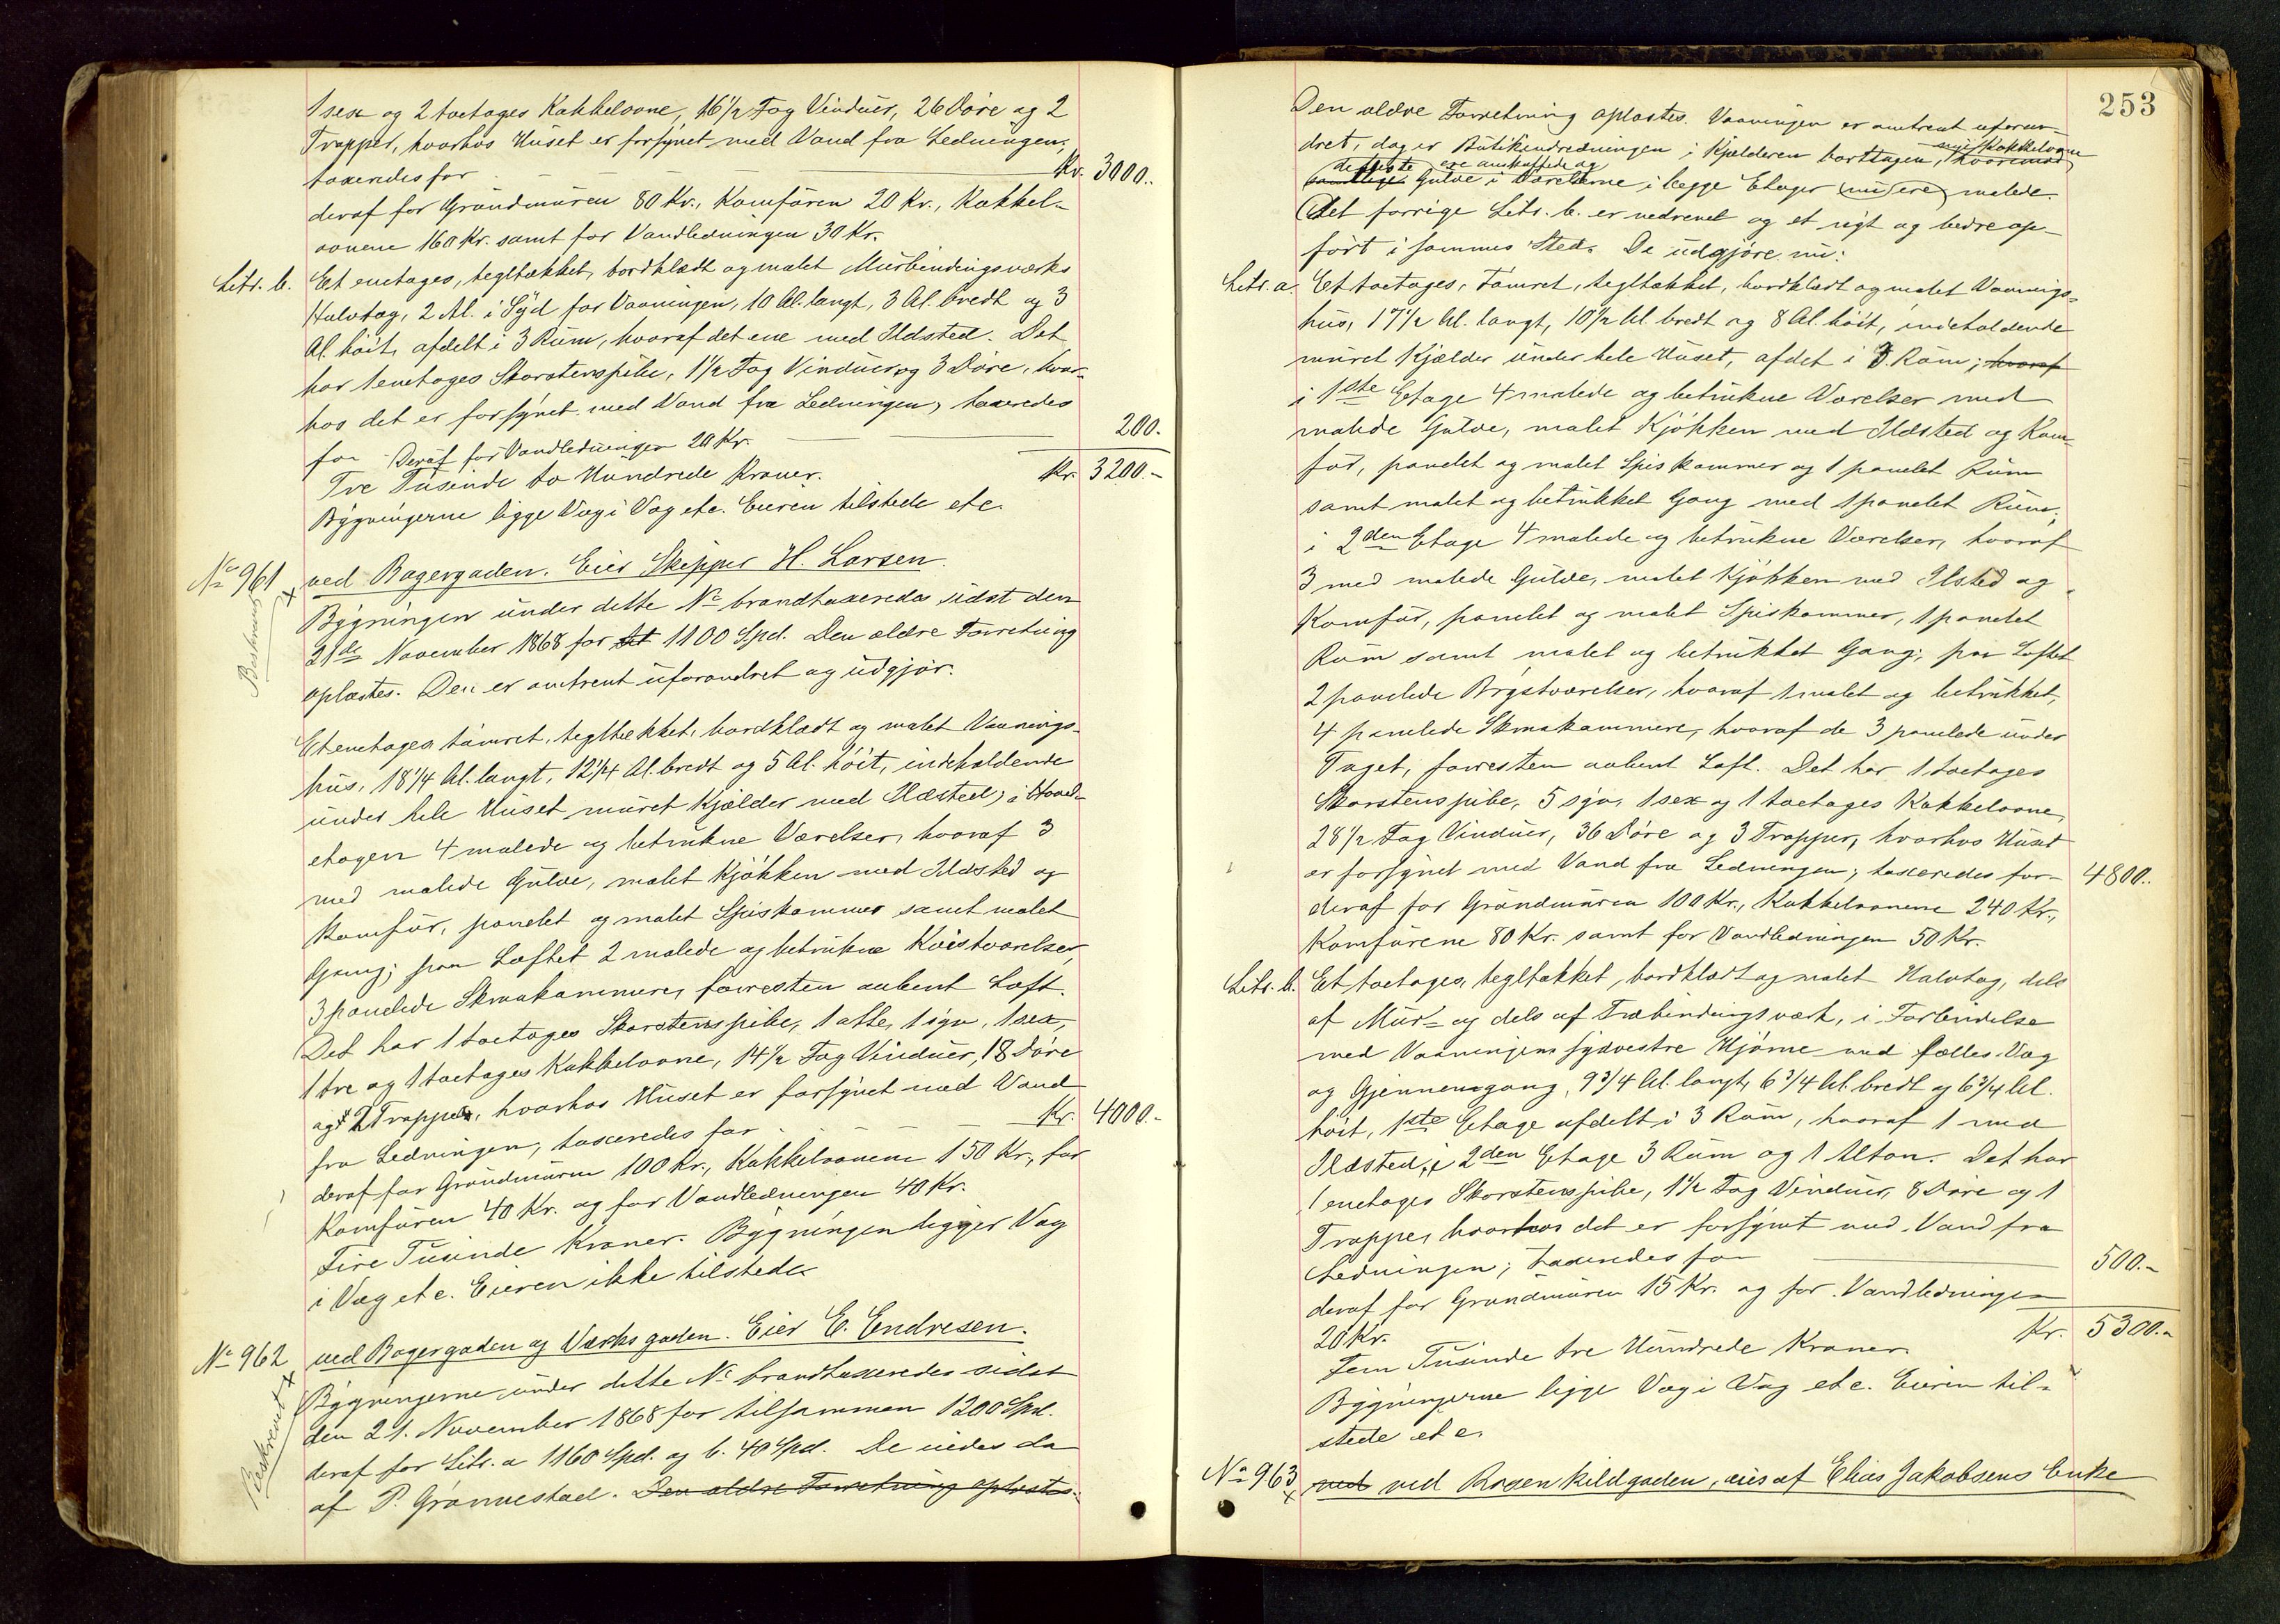 1 sex og 2 toetages Kakkelovne, 16 1/2 Fag Vinduer, 26 Döre og 2
Trapper, hvorhos Huset er forsynet med Vand fra Ledningen,
taxeredes for Kr. 3000..
deraf for Grundmuren 80 Kr., Komfuren 20 Kr., Kakkel-
ovnene 160 Kr. samt for Vandledningen 30 Kr.
Litr. b. Et enetages, tegltækket, bordklædt og malet Murbindingsværks
Halvtag, 2 Al. i Syd for Vaaningen, 10 Al. langt, 3 Al. bredt og 3
Al. höit, afdelt i 3 Rum, hvoraf det ene med Ildsted. Det
har 1 enetages Skorstenspibe, 1 1/2 Fag Vinduer og 3 Döre, hvor-
hos det er forsynet med Vand fra Ledningen, taxeredes
for Deraf for Vandledningen 20 Kr. 200.
Tre Tusinde to Hundrede Kroner. Kr. 3200.-
Bygningerne ligge Væg i Væg etc. Eieren tilstede etc.
No 961 ved Bagergaden. Eier Skipper H. Larsen.
Beskrevet
Bygningen under dette No brandtaxeredes sidst den
21de November 1868 for 1100 Spd. Den ældre Forretning
oplæstes. Den er omtrent uforandret og udgjör.
Et enetages tömret, tegltækket, bordklædt og malet Vaanings-
hus, 18 1/4 Al. langt, 12 1/4 Al. bredt og 5 Al. höit, indeholdende
under hele Huset muret Kjælder med Ildsted; i Hoved-
etagen 4 malede og betrukne Værelser, hvoraf 3
med malede Gulve, malet Kjökken med Ildsted og
Komfur, panelet og malet Spiskammer samt malet
Gang; paa Loftet 2 malede og betrukne Kvistværelser,
3 panelede Skraakammere, forresten aabent Loft.
Det har 1 toetages Skorstenspibe, 1 atte, 1 syv, 1 sex,
1 tre og 1 toetages Kakkelovne, 14 1/2 Fag Vinduer, 18 Döre
og 2 Trapper, hvorhos Huset er forsynet med Vand
fra Ledningen, taxeredes for Kr. 4000.-
deraf for Grundmuren 100 Kr., Kakkelovnene 150 Kr., for
Komfuren 40 Kr. og for Vandledningen 40 Kr.
Fire Tusinde Kroner. Bygningen ligger Væg
i Væg etc. Eieren ikke tilstede.
No 962 ved Bagergaden og Værksgaden. Eier E. Endresen.
Beskrevet
Bygningerne under dette No brandtaxeredes sidst
den 21. November 1868 for tilsammen 1200 Spd.
deraf for Litr. a 1160 Spd. og b. 40 Spd. De eiedes da
af P. Grönnestad. Den ældre Forretning oplæstes.
253
Den ældre Forretning oplæstes. Vaaningen er omtrent uforan-
dret, dog er Butikindredningen i Kjælderen borttagen, hvorimod
nye Kakkelovne
de fleste ere anskaffede og
samtlige Gulve i Værelserne i begge Etager nu ere malede.
Det forrige Litr. b. er nedrevet og et nyt og bedre op-
fört i sammes Sted. De udgjöre nu:
Litr. a. Et toetages, tömret, tegltækket, bordklædt og malet Vaanings-
hus, 17 1/2 Al. langt, 10 1/2 Al. bredt og 8 Al. höit, indeholdende
muret Kjælder under hele Huset, afdelt i 3 Rum; hvoraf
i 1ste Etage 4 malede og betrukne Værelser med
malede Gulve, malet Kjökken med Ildsted og Kom-
för, panelet og malet Spiskammer og 1 panelet Rum
samt malet og betrukket Gang med 1 panelet Rum;
i 2den Etage 4 malede og betrukne Værelser, hvoraf
3 med malede Gulve, malet Kjökken med Ilsted og
Komfur, panelet og malet Spiskammer, 1 panelet
Rum samt malet og betrukket Gang; paa Loftet
2 panelede Brystværelser, hvoraf 1 malet og betrukket,
4 panelede Skraakammere, hvoraf de 3 panelede under
Taget, forresten aabent Loft. Det har 1 toetages
Skorstenspibe, 5 syv, 1 sex og 1 toetages Kakkelovne,
28 1/2 Fag Vinduer, 36 Döre og 3 Trapper, hvorhos Huset
er forsynet med Vand fra Ledningen; taxeredes for 4800..
deraf for Grundmuren 100 Kr., Kakkelovnene 240 Kr.,
Komfurene 80 Kr. samt for Vandledningen 50 Kr.
Litr. b. Et toetages, tegltækket, bordklædt og malet Halvtag, dels
af Mur- og dels af Træbindingsværk, i Forbindelse
med Vaaningens sydvestre Hjörne med fælles Væg
og Gjennemgang, 9 3/4 Al. langt, 6 3/4 Al. bredt og 6 3/4 Al.
höit, 1ste Etage afdelt i 3 Rum, hvoraf 1 med
Ildsted, i 2den Etage 3 Rum og 1 Altan. Det har
1 enetages Skorstenspibe, 1 1/2 Fag Vinduer, 8 Döre og 1
Trappe, hvorhos det er forsynet med Vand fra
Ledningen; taxeredes for 500.-
deraf for Grundmuren 15 Kr. og for Vandledningen
20 Kr. Kr. 5300.-
Fem Tusinde tre Hundrede Kroner.
Bygningerne ligge Væg i Væg etc. Eieren til-
stede etc.
No 963 ved ved Rosenkildgaden, eies af Elias Jakobsens Enke